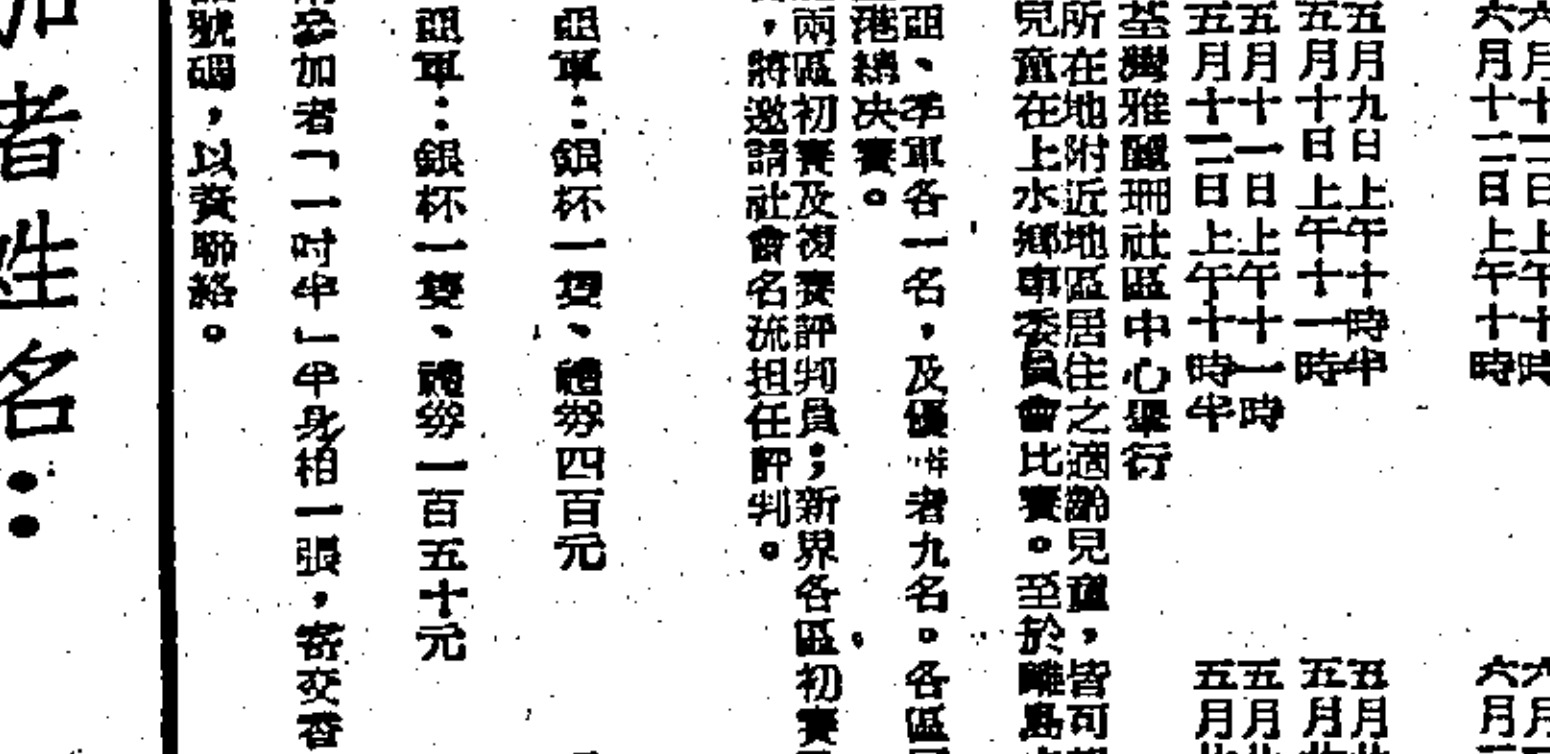 六月十一日上午十時
六月十二日上午十時
五月九日上午十時半
五月十日上午十一時
五月十一日上午十一時
五月十二日上午十時半
六月
六月
五月
五月
五月
五月
荃灣雅麗珊社區中心舉行
所在地附近地區居住之適齡兒童，皆可
兒童在上水鄉事委員會比賽。至於離島
亞、季軍各一名，及優
者九名。各區
港總決賽。
兩區初賽及複賽評判員；新界各區初賽
，將邀請社會名流担任評判。
亞軍：銀杯一隻、禮劵四百元
亞軍：銀杯一隻、禮劵一百五十元
參加者「一吋半」半身相一張，寄交香
號碼，以資聯絡。
加者姓名：